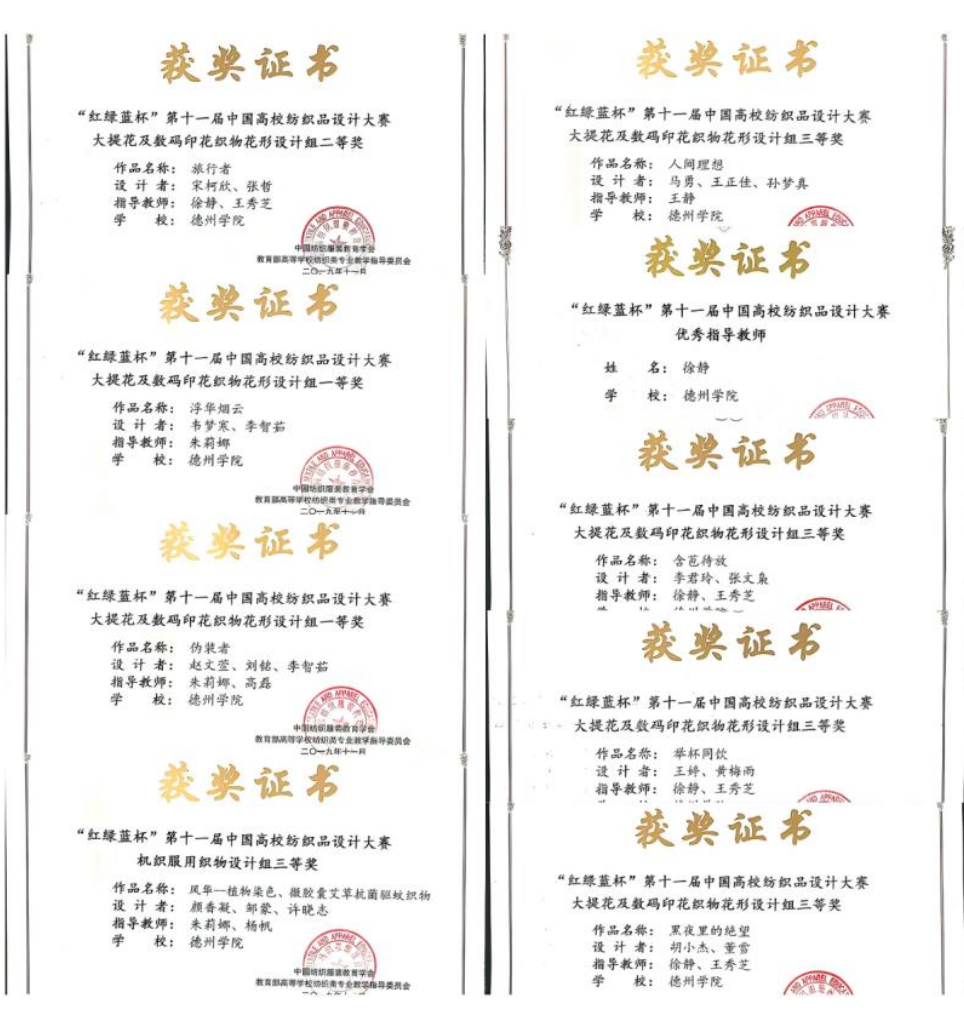 获奖证书
“红绿蓝杯”第十一届中国高校纺织品设计大赛
大提花及数码印花织物花形设计组二等奖
作品名称： 旅行者
设计者： 宋柯欣、张哲
指导教师： 徐静、王秀芝
学校： 德州学院
中国纺织服装教育学会
教育部高等学校纺织类专业教学指导委员会
二〇一九年十一月
获奖证书
“红绿蓝杯”第十一届中国高校纺织品设计大赛
大提花及数码印花织物花形设计组一等奖
作品名称： 浮华烟云
设计者： 韦梦寒、李智茹
指导教师： 朱莉娜
学校： 德州学院
中国纺织服装教育学会
教育部高等学校纺织类专业教学指导委员会
二〇一九年十一月
获奖证书
“红绿蓝杯”第十一届中国高校纺织品设计大赛
大提花及数码印花织物花形设计组一等奖
作品名称： 伪装者
设计者： 赵文莹、刘铭、李智茹
指导教师： 朱莉娜、高磊
学校： 德州学院
中国纺织服装教育学会
教育部高等学校纺织类专业教学指导委员会
二〇一九年十一月
获奖证书
“红绿蓝杯”第十一届中国高校纺织品设计大赛
机织服用织物设计组三等奖
作品名称： 风华--植物染色、微胶囊艾草抗菌驱蚊织物
设计者： 颜香凝、邹蒙、许晓志
指导教师： 朱莉娜、杨帆
学校： 德州学院
中国纺织服装教育学会
教育部高等学校纺织类专业教学指导委员会
获奖证书
“红绿蓝杯”第十一届中国高校纺织品设计大赛
大提花及数码印花织物花形设计组三等奖
作品名称： 人间理想
设计者： 马勇、王正佳、孙梦真
指导教师： 王静
学校： 德州学院
获奖证书
“红绿蓝杯”第十一届中国高校纺织品设计大赛
优秀指导教师
姓名： 徐静
学校： 德州学院
获奖证书
“红绿蓝杯”第十一届中国高校纺织品设计大赛
大提花及数码印花织物花形设计组三等奖
作品名称： 含芭待放
设计者： 李君玲、张文枭
指导教师： 徐静、王秀芝
获奖证书
“红绿蓝杯”第十一届中国高校纺织品设计大赛
大提花及数码印花织物花形设计组三等奖
作品名称： 举杯同饮
设计者： 王婷、黄梅雨
指导教师： 徐静、王秀芝
获奖证书
“红绿蓝杯”第十一届中国高校纺织品设计大赛
大提花及数码印花织物花形设计组三等奖
作品名称： 黑夜里的绝望
设计者： 胡小杰、董雪
指导教师： 徐静、王秀芝
学校： 德州学院